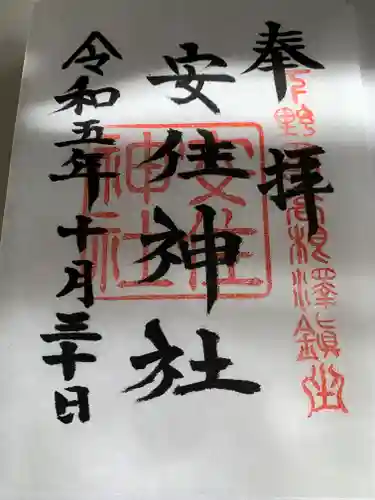 奉拝
下野国高根澤鎮座
安住神社
安住
神社
令和五年十月三十日